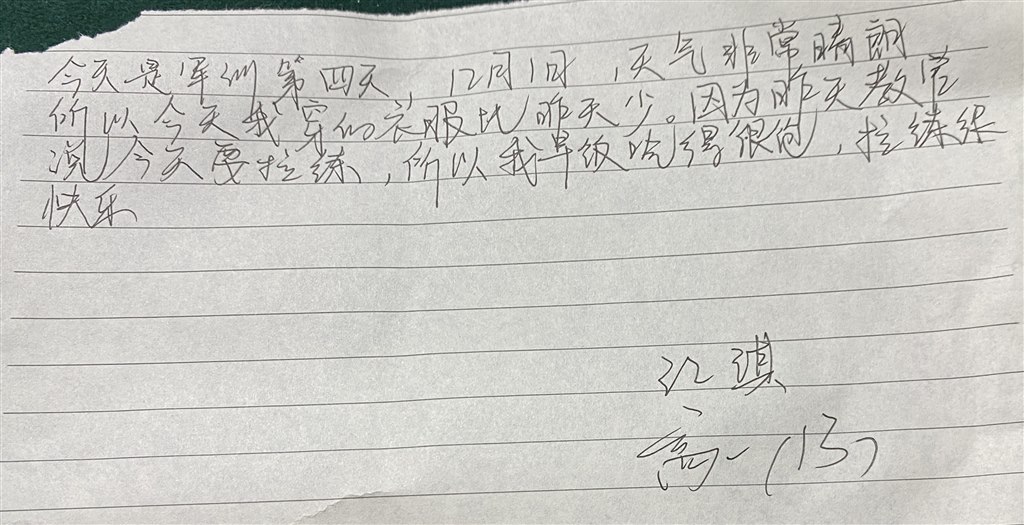 今天是军训第四天，12月1日，天气非常晴朗
所以今天我穿的衣服比昨天少。因为昨天教官
说今天要拉练，所以我早饭吃得很饱，拉练很
快乐
江琪
高一(13)